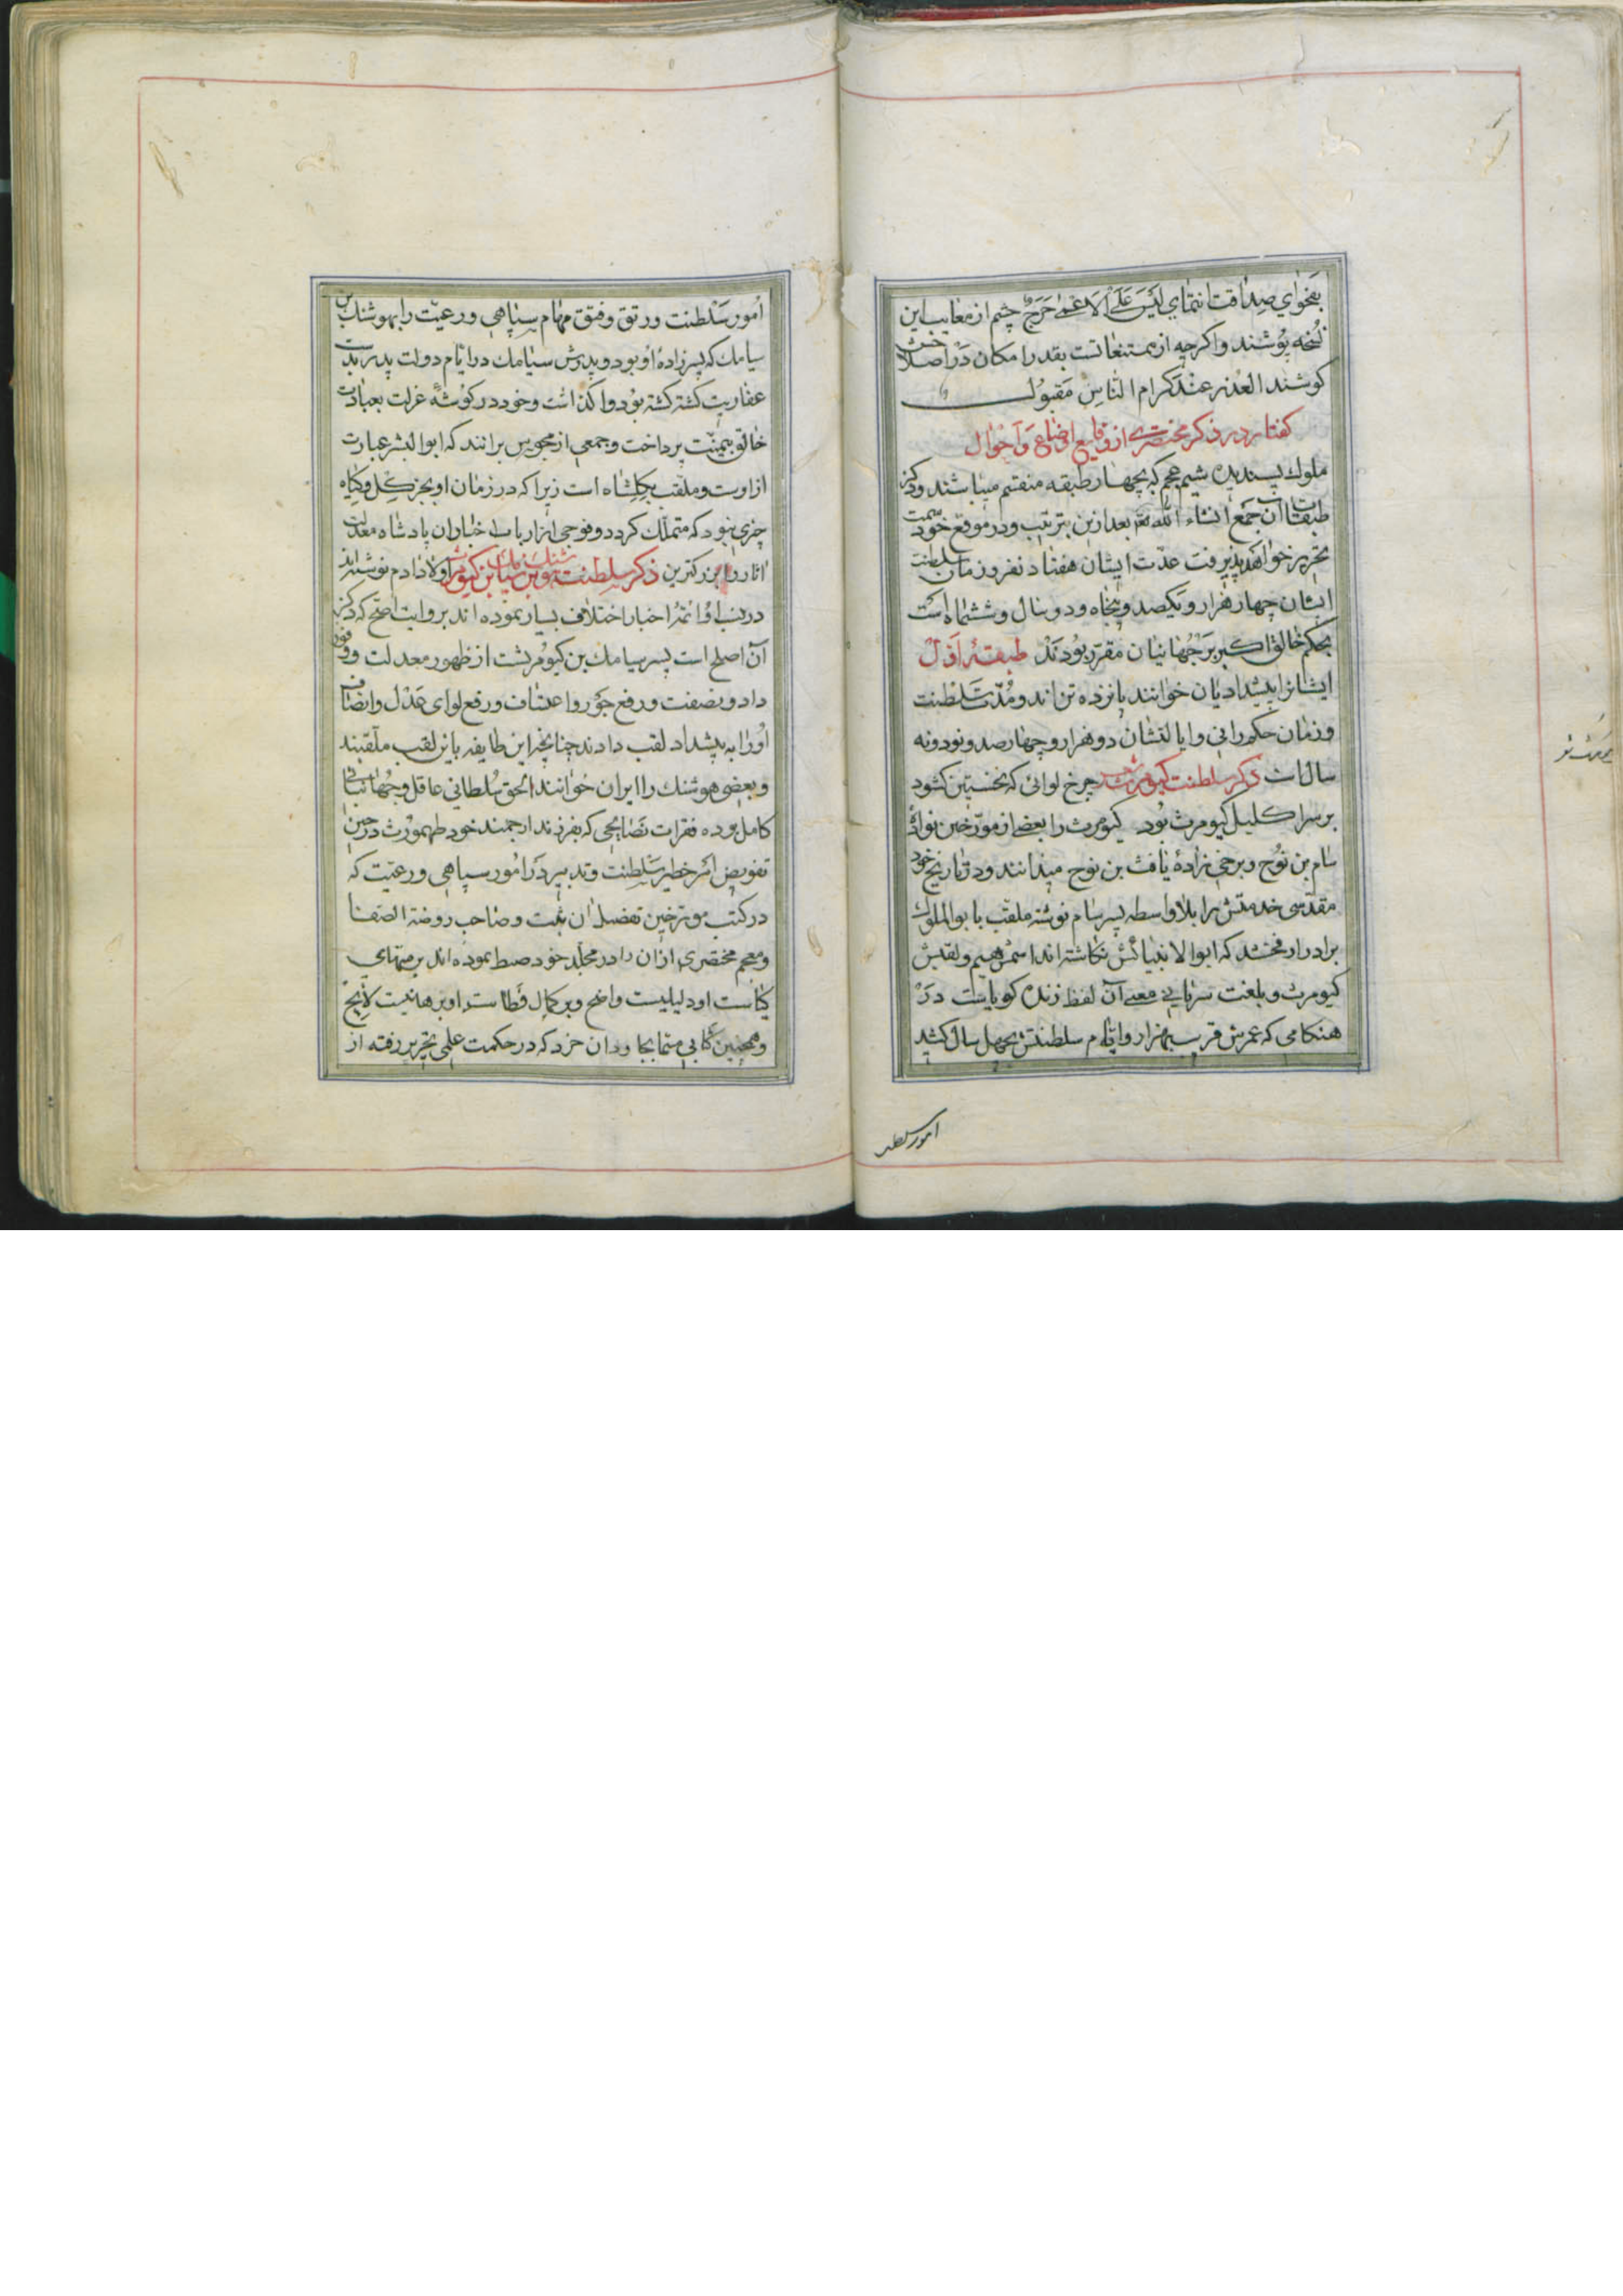 بفحوای صداقت انتمای لَیسَ عَلَی الاَعمی حَرَجٌ چشم از معایب این
نسخه پوشند و اکرچه از ممتنعاتست بقدر امکان دَر اصلاحش
کوشند العُذر عِندَ کرام النّاسِ مَقبوُل
کفتار در ذکر مختصری از وقایع اوضاع وَ اَحوٰال
ملوک پسندیده شیم عجم که بچهار طبقه منقسم میباشند و ذکر
طبقات آن جَمع انشاء الله تع بعد ازین بترتیب و در موقع خود سمت
تحریر خواهد پذیرفت عدّت ایشان هفتاد نفر و زمان سلطنت
ایشان چهار هزار و یکصد و پنجاه و دو سال و ششماه است
بحکم خالق اکبر بَر جُهانیان مقرّر بوُدند طبقهٔ اَوّل
ایشانرا پیشدادیان خوانند یانزده تن اند و مُدّت سَلطنت
و زمان حکمرانی و ایالتشان دو هزار و چهارصد و نود و نه
سال است ذکر سلطنت کیومرث چرخ لوائی که نخستین کشود
بر سر اکلیل کیومرث بوُد کیومرث را بعضی از مورّخین نوادهٔ
سام بن نوُح و برخی زادهٔ یافث بن نوح میدانند و در تاریخ خود
مقدّسی خدمتش را بلا واسطه پسر سام نوشته ملقب بابو الملوک
برادر ارفخشد که ابو الانبیائش نکاشته اند اسمش هیم و لقبش
کیومرث و بلغت سریانی معنی آن لفظ زنده کویاست دَر
هنکامی که عمرش قریب بهزار و ایّام سلطنتش بچهل سال کشید
امور سلط
اموُر سَلطنت و رتق و فتق مهٰام سپٰاهی و رعیّت را بهوشنک بن
سیامک که پسر زادهٔ او بود و پدرش سیٰامک در ایّام دولت پدر بدست
عفاریت کشته کشته بوُد واکذاشت و خود در کوُشهٔ عزلت بعبادت
خالق بیمنّت پرداخت و جمعی از مجوس برانند که ابو البشر عبارت
از اوست و ملقب بکلشاه است زیرا که در زمان او بجز کِل و کیاه
چیزی نبود که متملّک کردد و فوجی از ارباب اخبار ان پادشاه معدلت
اثار را بزرکترین اولاد ادم نوشته اند ذکر سلطنت هوشنک بن سیامک بن کیومرث
در نسب او ائمّهٔ اخبار اختلاف بسیار نموده اند بروایت اصّح که ذکر
آن اصلح است پسر سیامک بن کیوُمرثست از ظهور معدلت و وفور
داد و نصفت و رفع جَور و اعتساف و رفع لوای عَدل و انصٰاف
اوُرا به پیشداد لقب دادند چنانچه این طایفه باین لقب ملّقبند
و بعضی هوشنک را ایران خوٰانند الحق سُلطانی عاقل و جُهانبٰانی
کامل بوده فقرات نصٰایحی که بفرزند ارجمند خود طهموُرث در حین
تفویض امر خطیر سَلطنت و تدبیر دَر اموُر سپاهی و رعیّت که
در کتب مورّخین تفصیل ان ثبت و صٰاحب روضة الصّفا
و معجم مختصری از ان را در مجلّد خود ضبط نموده اند بر منتهای
کیاست او دلیلیست واضح و بر کمال فَطانت او برهانیست لایح
و همچنین کتابی مسمّا بجاودان خرد که در حکمت علمی تحریر رفته از